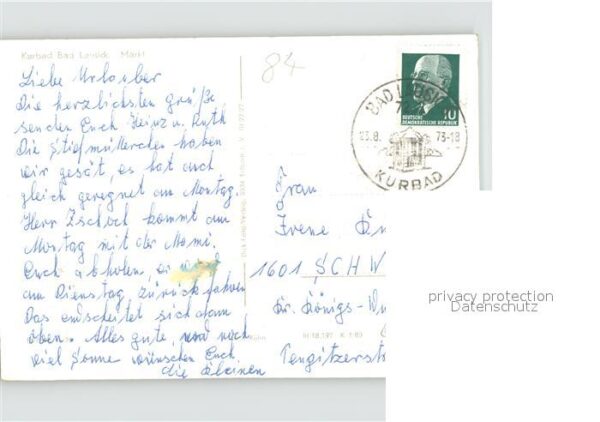 Kurbad Bad Lausick Markt
84
Liebe Urlauber
Die herzlichsten Grüße
senden Euch Heinz u. Ruth
Die Stiefmütterchen haben
wir gesät, es hat auch
gleich geregnet am Montag.
Herr Zschoch kommt am
Montag mit der Mami.
Euch abholen,
am Dienstag zurückfahren
Das entscheitet sich dann
oben. Alles gute, und noch
viel Sonne wünschen Euch
die Kleinen
DEUTSCHE
DEMOKRATISCHE REPUBLIK
10
BAD LAUSICK
23.8. 73-18
KURBAD
Frau
Irene
1601 SCHW
Kr. Königs-Wu
privacy protection
Datenschutz